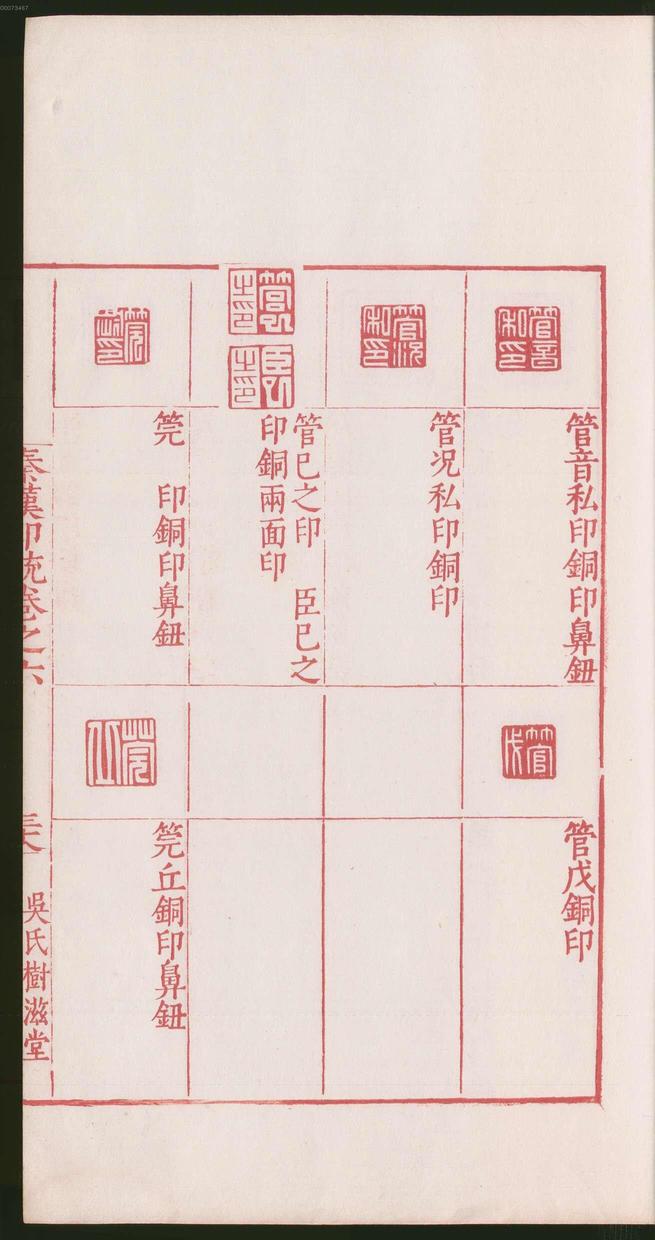 00073467
管音私印銅印鼻鈕
管戊銅印
管况私印銅印
管巳之印 臣巳之
印銅兩面印
筦 印銅印鼻鈕
筦丘銅印鼻鈕
秦漢印統卷之六
吳氏樹滋堂